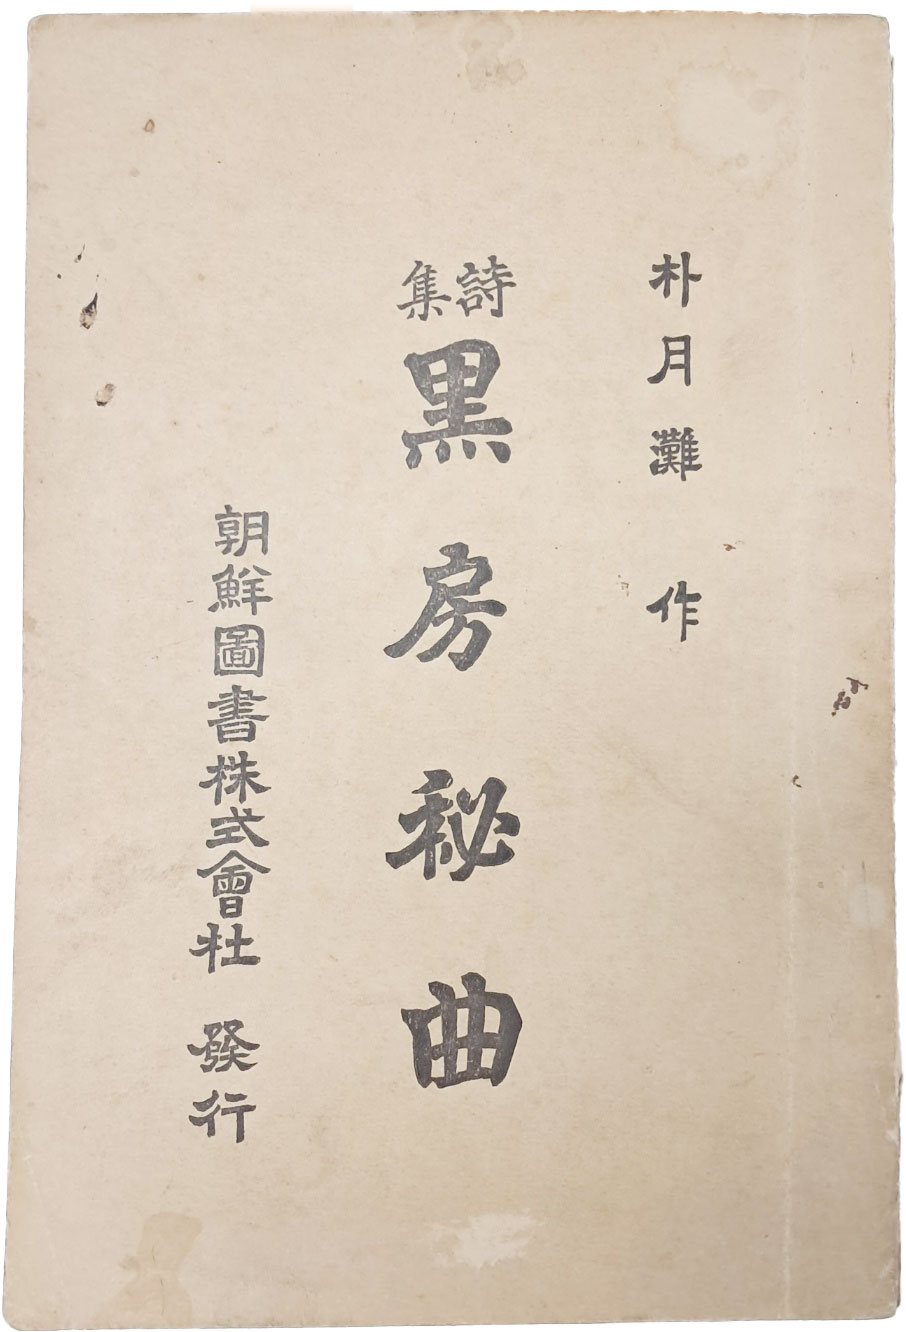 朴月灘 作
詩集
黒房秘曲
朝鮮圖書株式會社 發行